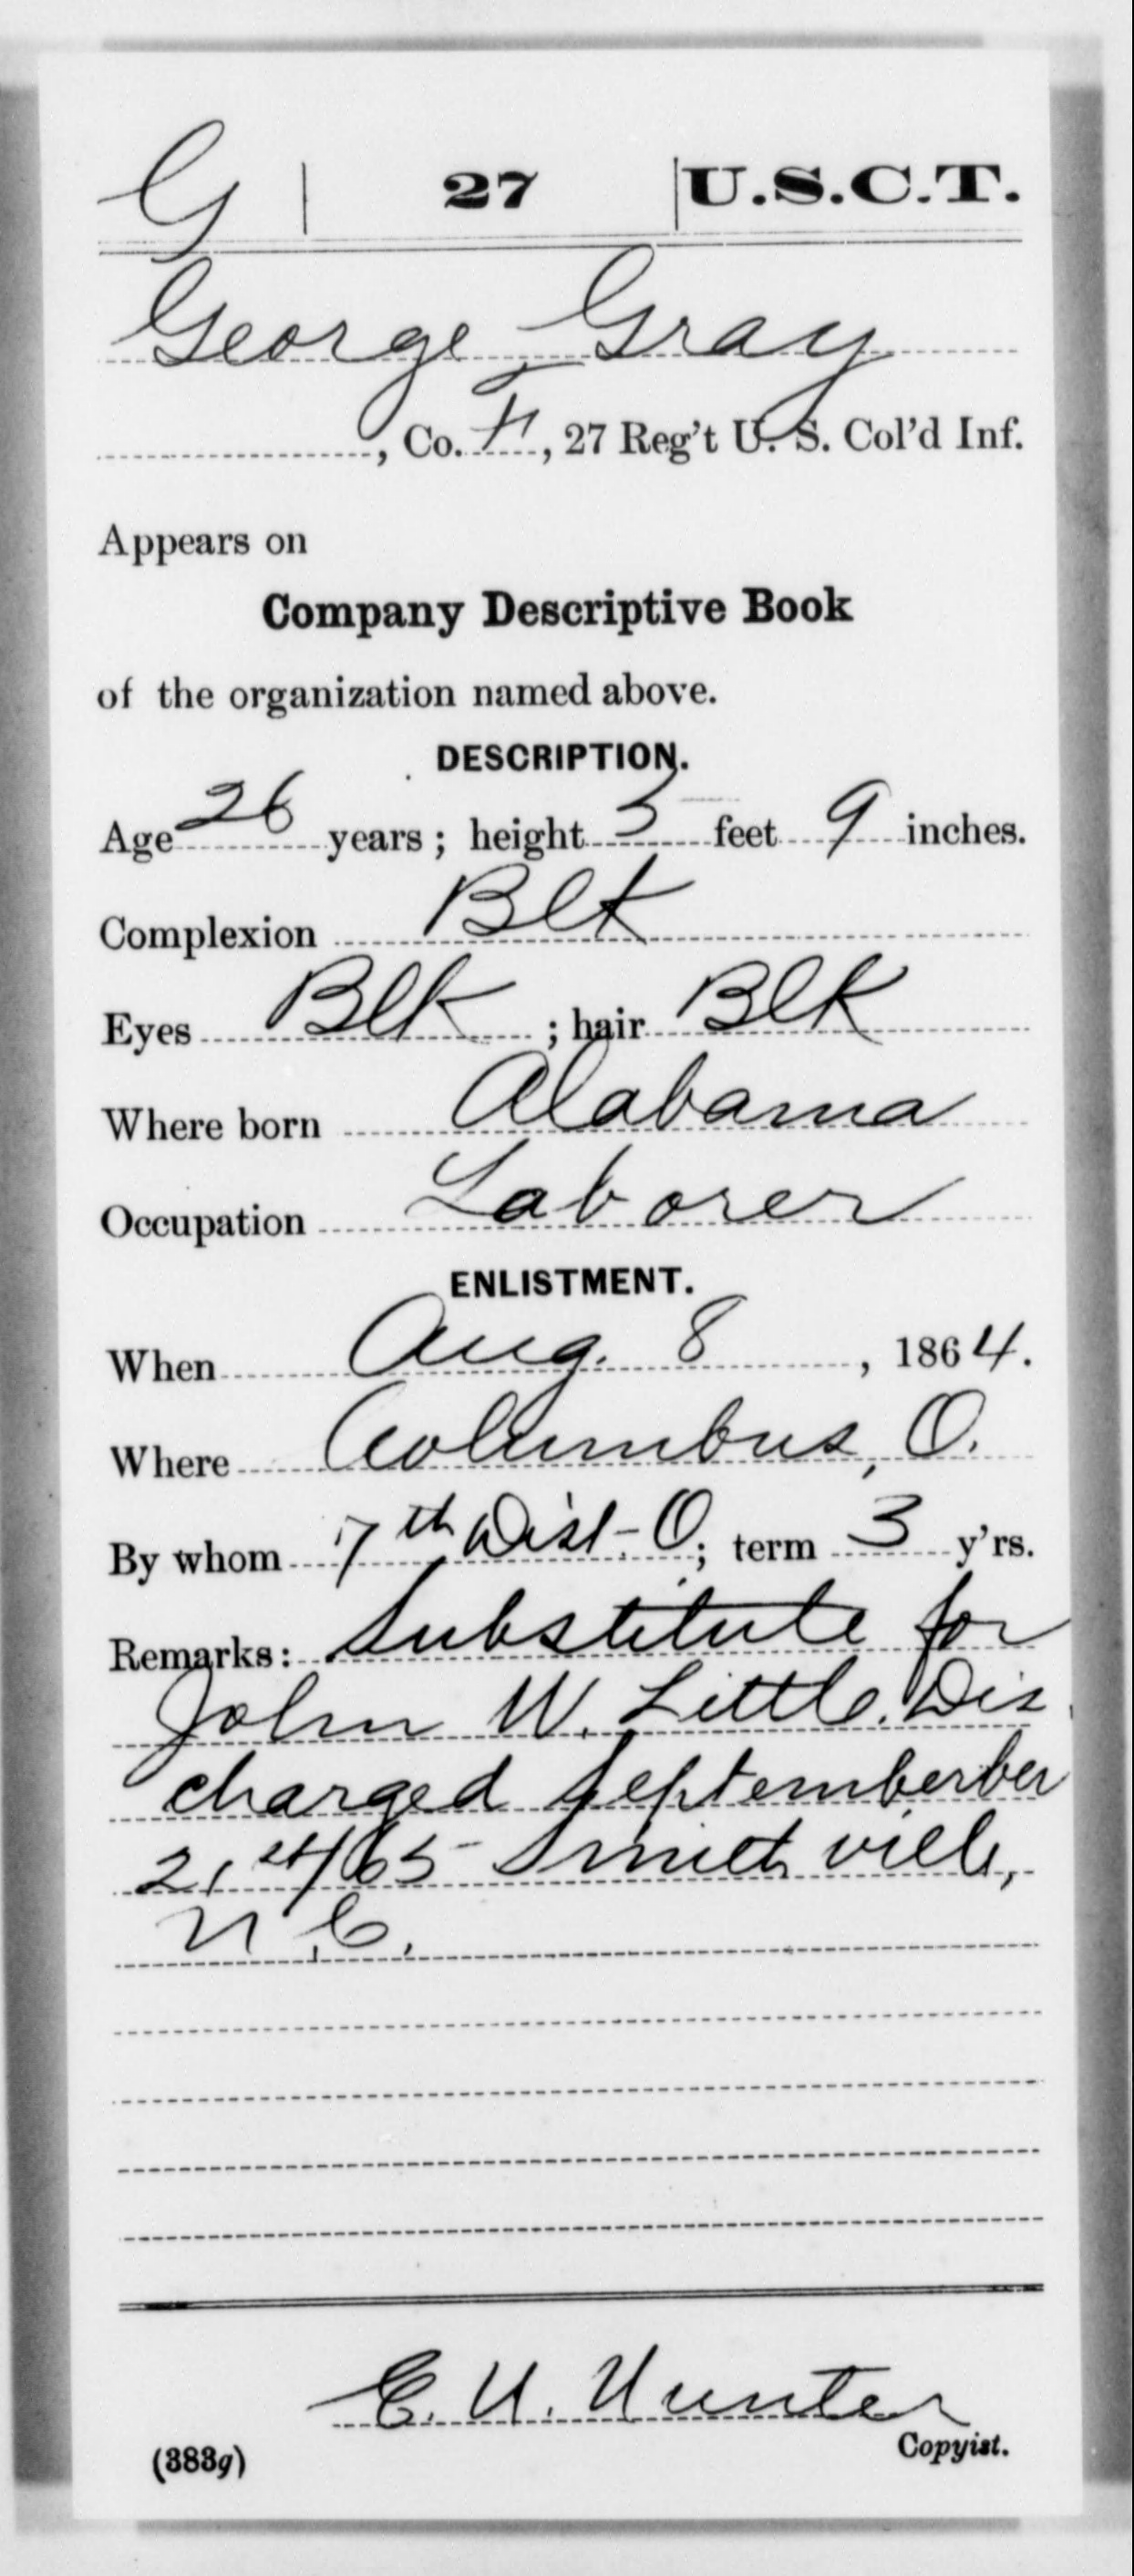 G | 27 | U.S.C.T.
George Gray
, Co. H, 27 Reg't U. S. Col'd Inf.
Appears on
Company Descriptive Book
of the organization named above.
DESCRIPTION.
Age 26 years; height 5 feet 9 inches.
Complexion Blk
Eyes Blk; hair Blk
Where born Alabama
Occupation Laborer
ENLISTMENT.
When Aug. 8, 1864.
Where Columbus, O.
By whom 7th Dist-O; term 3 y'rs.
Remarks: Substitute for
John W. Little. Dis
charged Septemberber
21st/65 Smithville,
N.C.
Hunter
Copyist.
(383g)